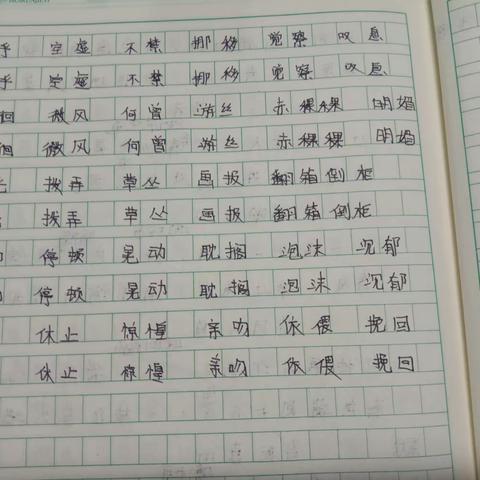 乎 空虚 不禁 挪移 觉察 叹息
乎 空虚 不禁 挪移 觉察 叹息
徊 微风 何曾 游丝 赤裸裸 明媚
徊 微风 何曾 游丝 赤裸裸 明媚
拨弄 草丛 画报 翻箱倒柜
拨弄 草丛 画报 翻箱倒柜
停顿 晃动 耽搁 泡沫 沉郁
停顿 晃动 耽搁 泡沫 沉郁
休止 惊惶 亲吻 依偎 挽回
休止 惊惶 亲吻 依偎 挽回